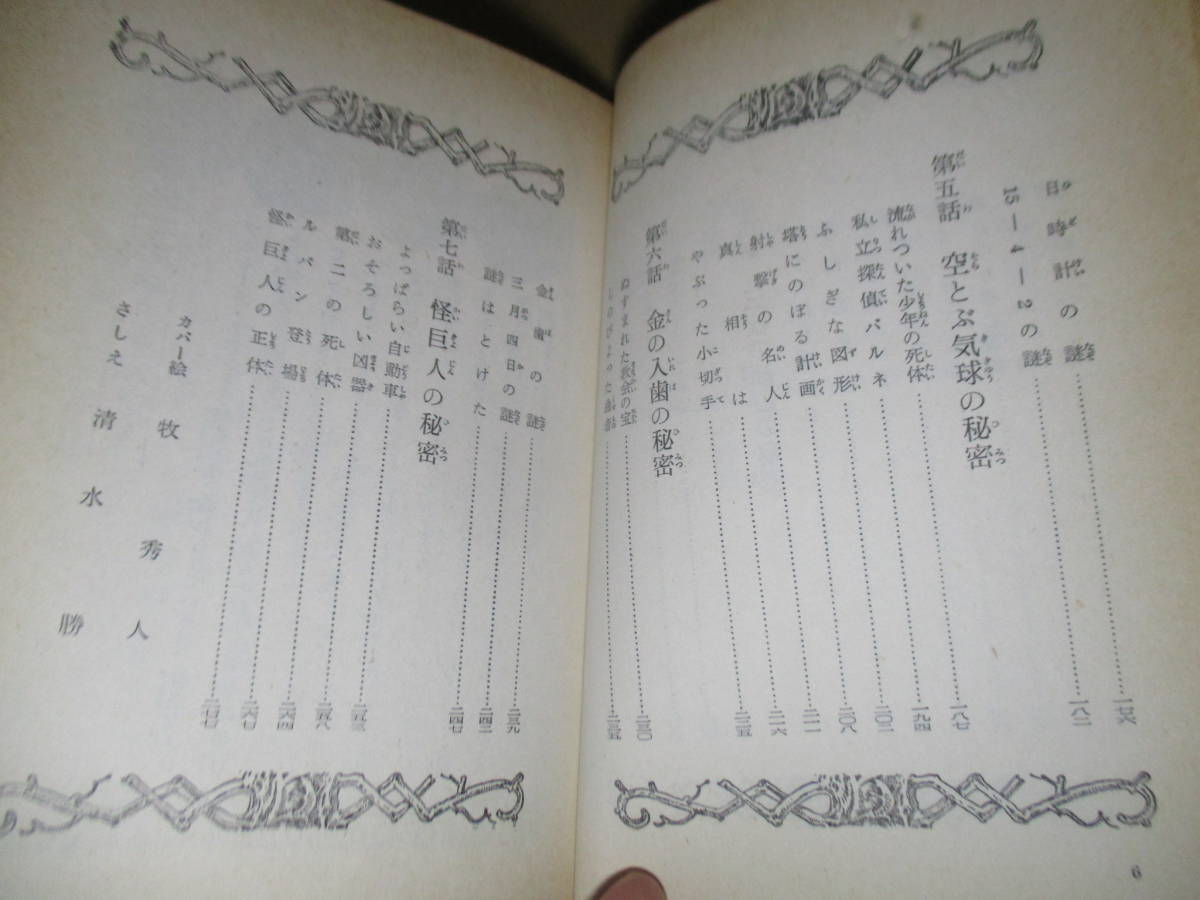 日時計の謎 一七六
15—4—2の謎 一八二
第五話 空とぶ気球の秘密
流れついた少年の死体 一八七
私立探偵バルネ 一九四
ふしぎな図形 二〇二
塔にのぼる計画 二〇八
射撃の名人 二一一
真相は 二一六
やぶった小切手 二二五
第六話 金の入歯の秘密
ぬすまれた教会の宝 二三〇
しのびよった 二三五
6
金歯の謎 二三九
三月四日の謎 二四二
謎はとけた 二四七
第七話 怪巨人の秘密
よっぱらい自動車 二五三
おそろしい凶器 二五八
第二の死体 二六四
ルパン登場 二六七
怪巨人の正体 二七〇
カバー絵 牧秀人
さしえ 清水勝